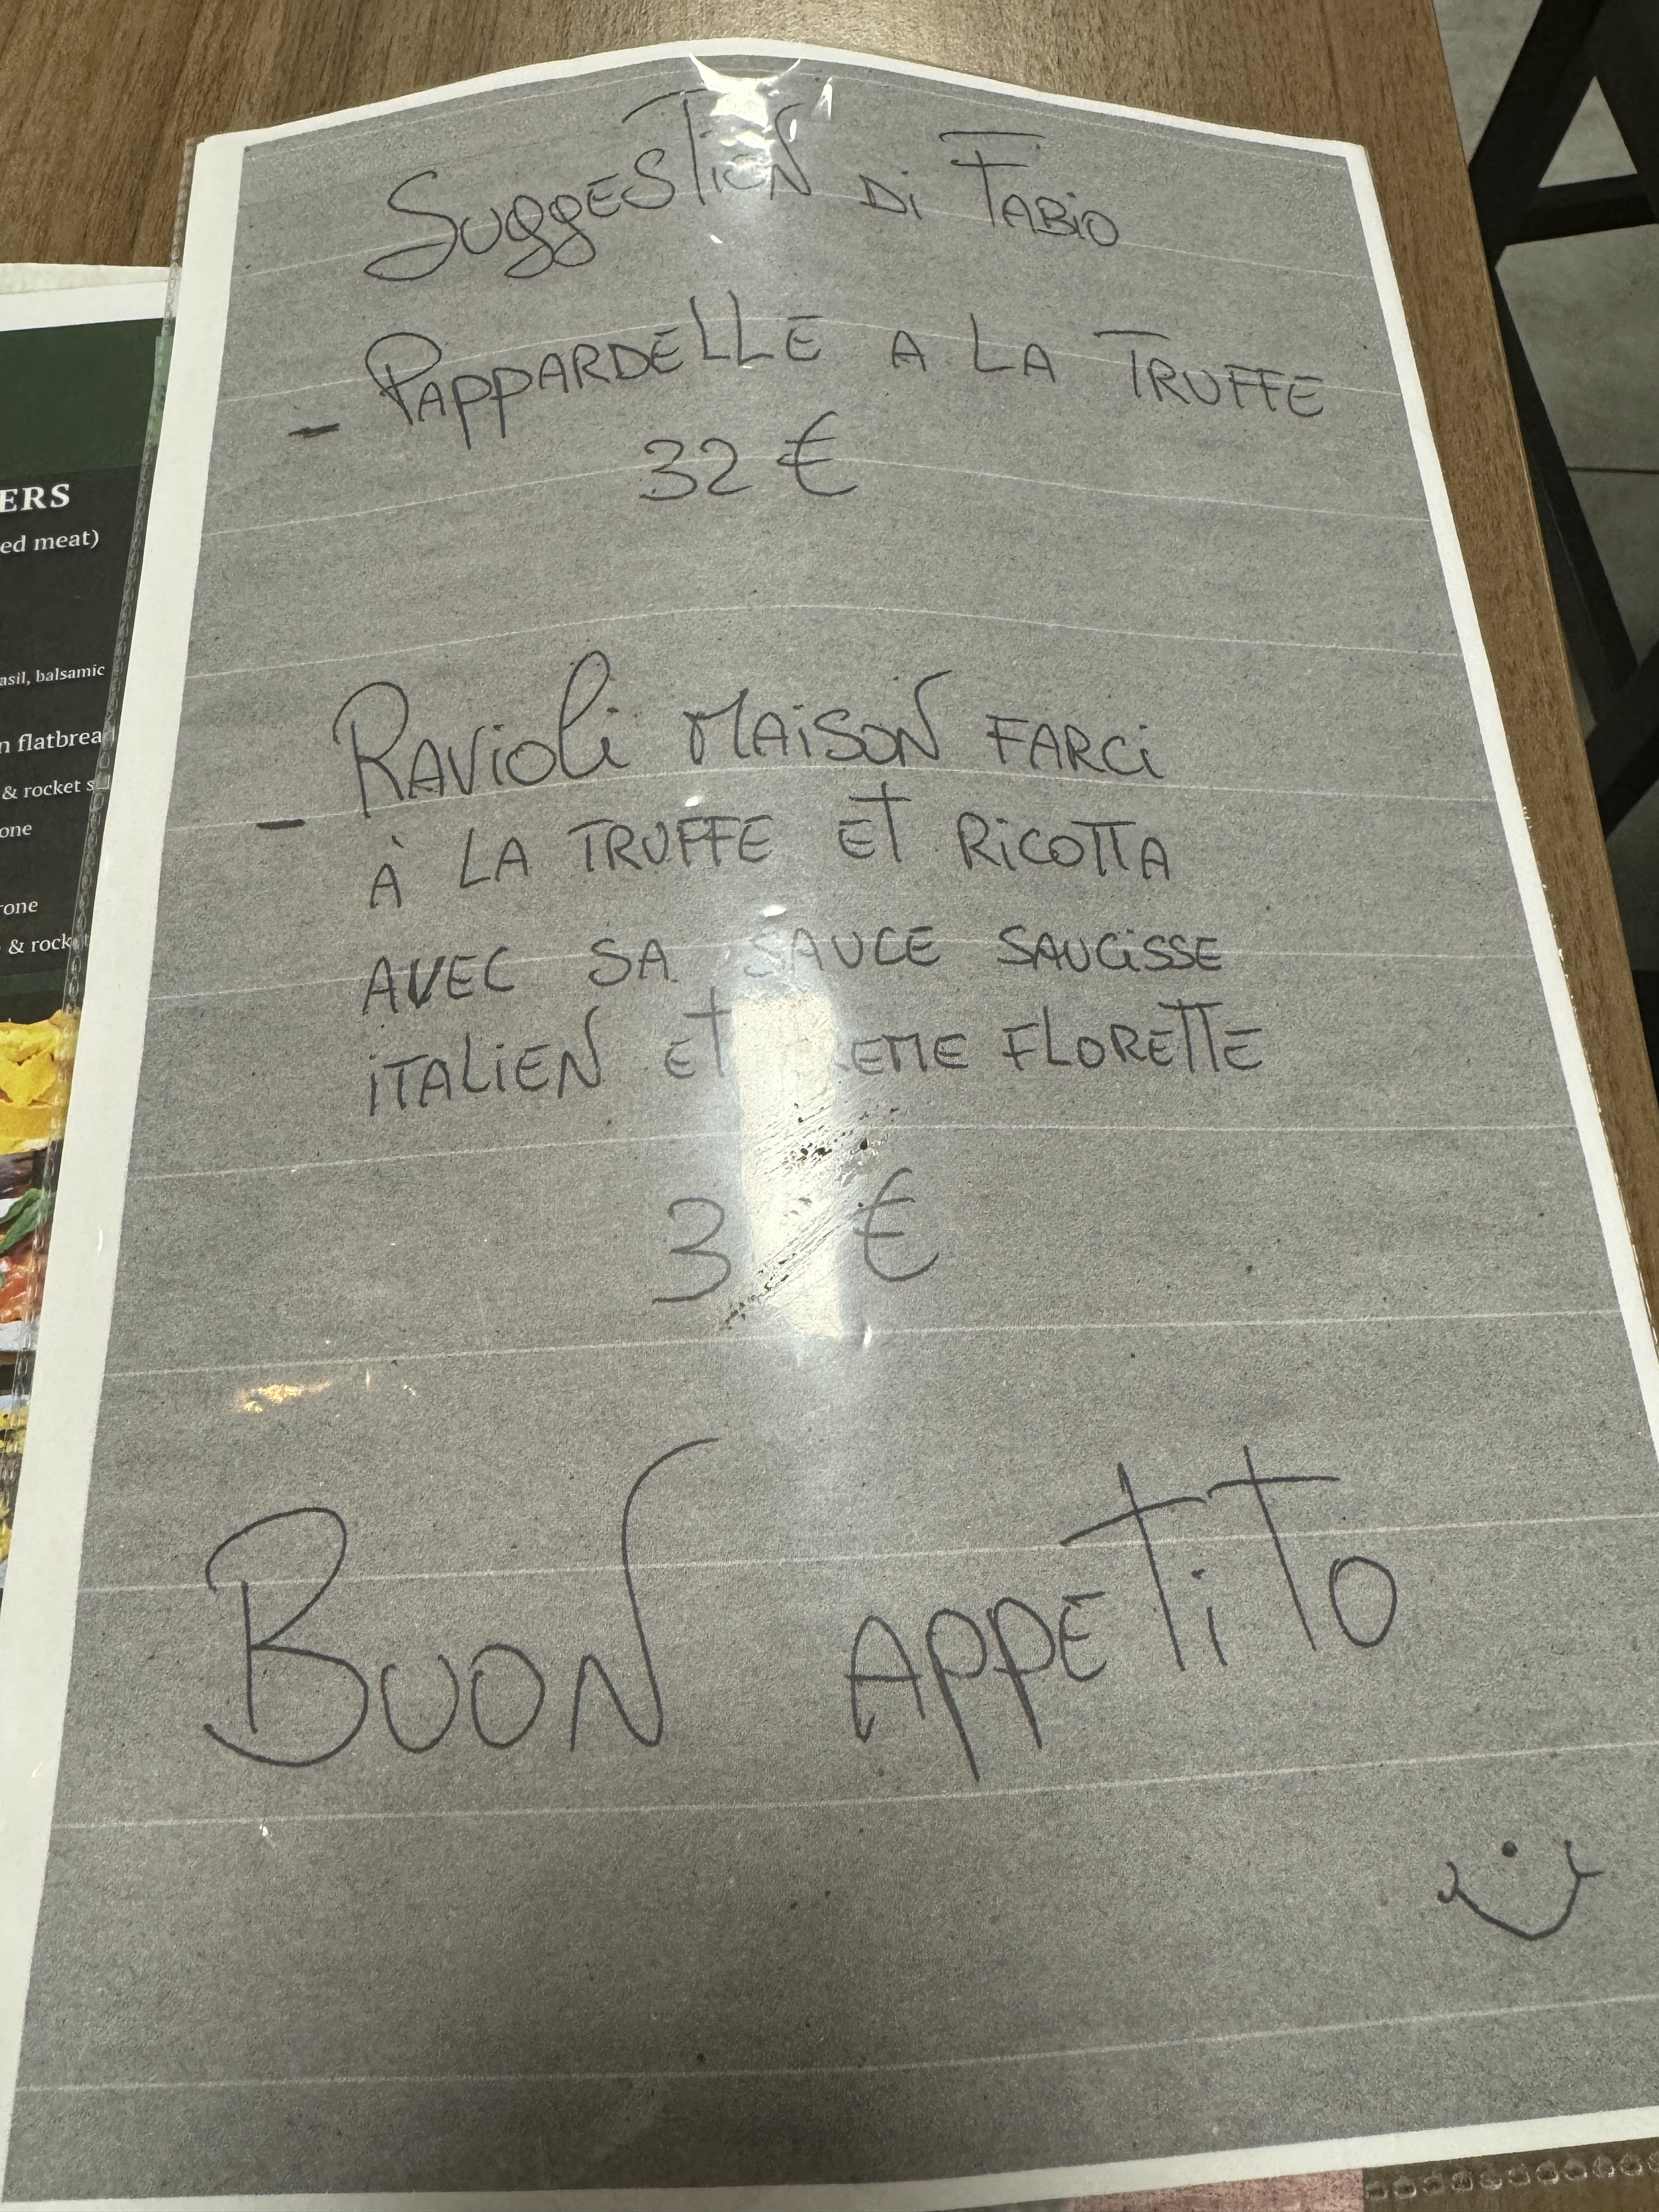 SUGGESTION DI FABIO
- PAPPARDELLE A LA TRUFFE
32 €
- RAVIOLI MAISON FARCI
À LA TRUFFE ET RICOTTA
AVEC SA SAUCE SAUCISSE
ITALIEN ET FLORETTE
€
BUON APPETITO
ERS
ed meat)
asil, balsamic
n flatbrea
& rocket s
one
rone
& rocket